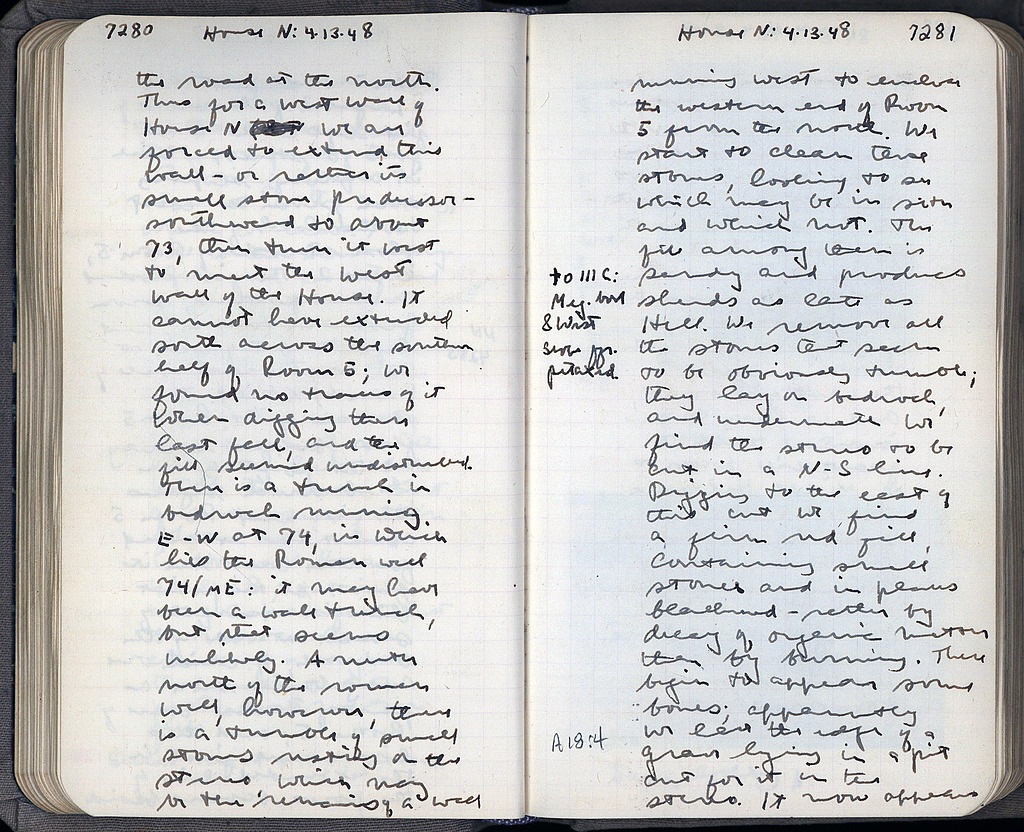 7280 House N: 4.13.48
the road at the north.
Thus for a west wall of
House N we are
forced to extend this
wall - or rather its
small stone predecessor -
southward to about
73, then turn it west
to meet the west
wall of the House. It
cannot have extended
south across the southern
half of Room 5; we
found no traces of it
when digging there
last fall, and the
fill seemed undisturbed.
There is a trench in
bedrock running
E-W at 74, in which
lies the Roman well
74/ME: it may have
been a wall trench,
but that seems
unlikely. A meter
north of the roman
well, however, there
is a tumble of small
stones resting on the
stereo which may
be the remains of a wall
House N: 4.13.48 7281
running west to enclose
the western end of Room
5 from the north. We
start to clean these
stones, looking to see
which may be in situ
and which not. The
fill among them is
sandy and produces
sherds as late as
Hell. We remove all
the stones that seem
to be obviously tumble;
they lay on bedrock,
and underneath we
find the stereo to be
cut in a N-S line.
Digging to the east of
this cut we find
a firm red fill,
containing small
stones and in places
blackened - rather by
decay of organic matter
than by burning. There
begin to appear some
bones; apparently
we have the edge of a
grave lying in a pit
cut for it in the
stereo. It now appears
to III C:
Meg. bowl
& West
Slope fr.
A18:4